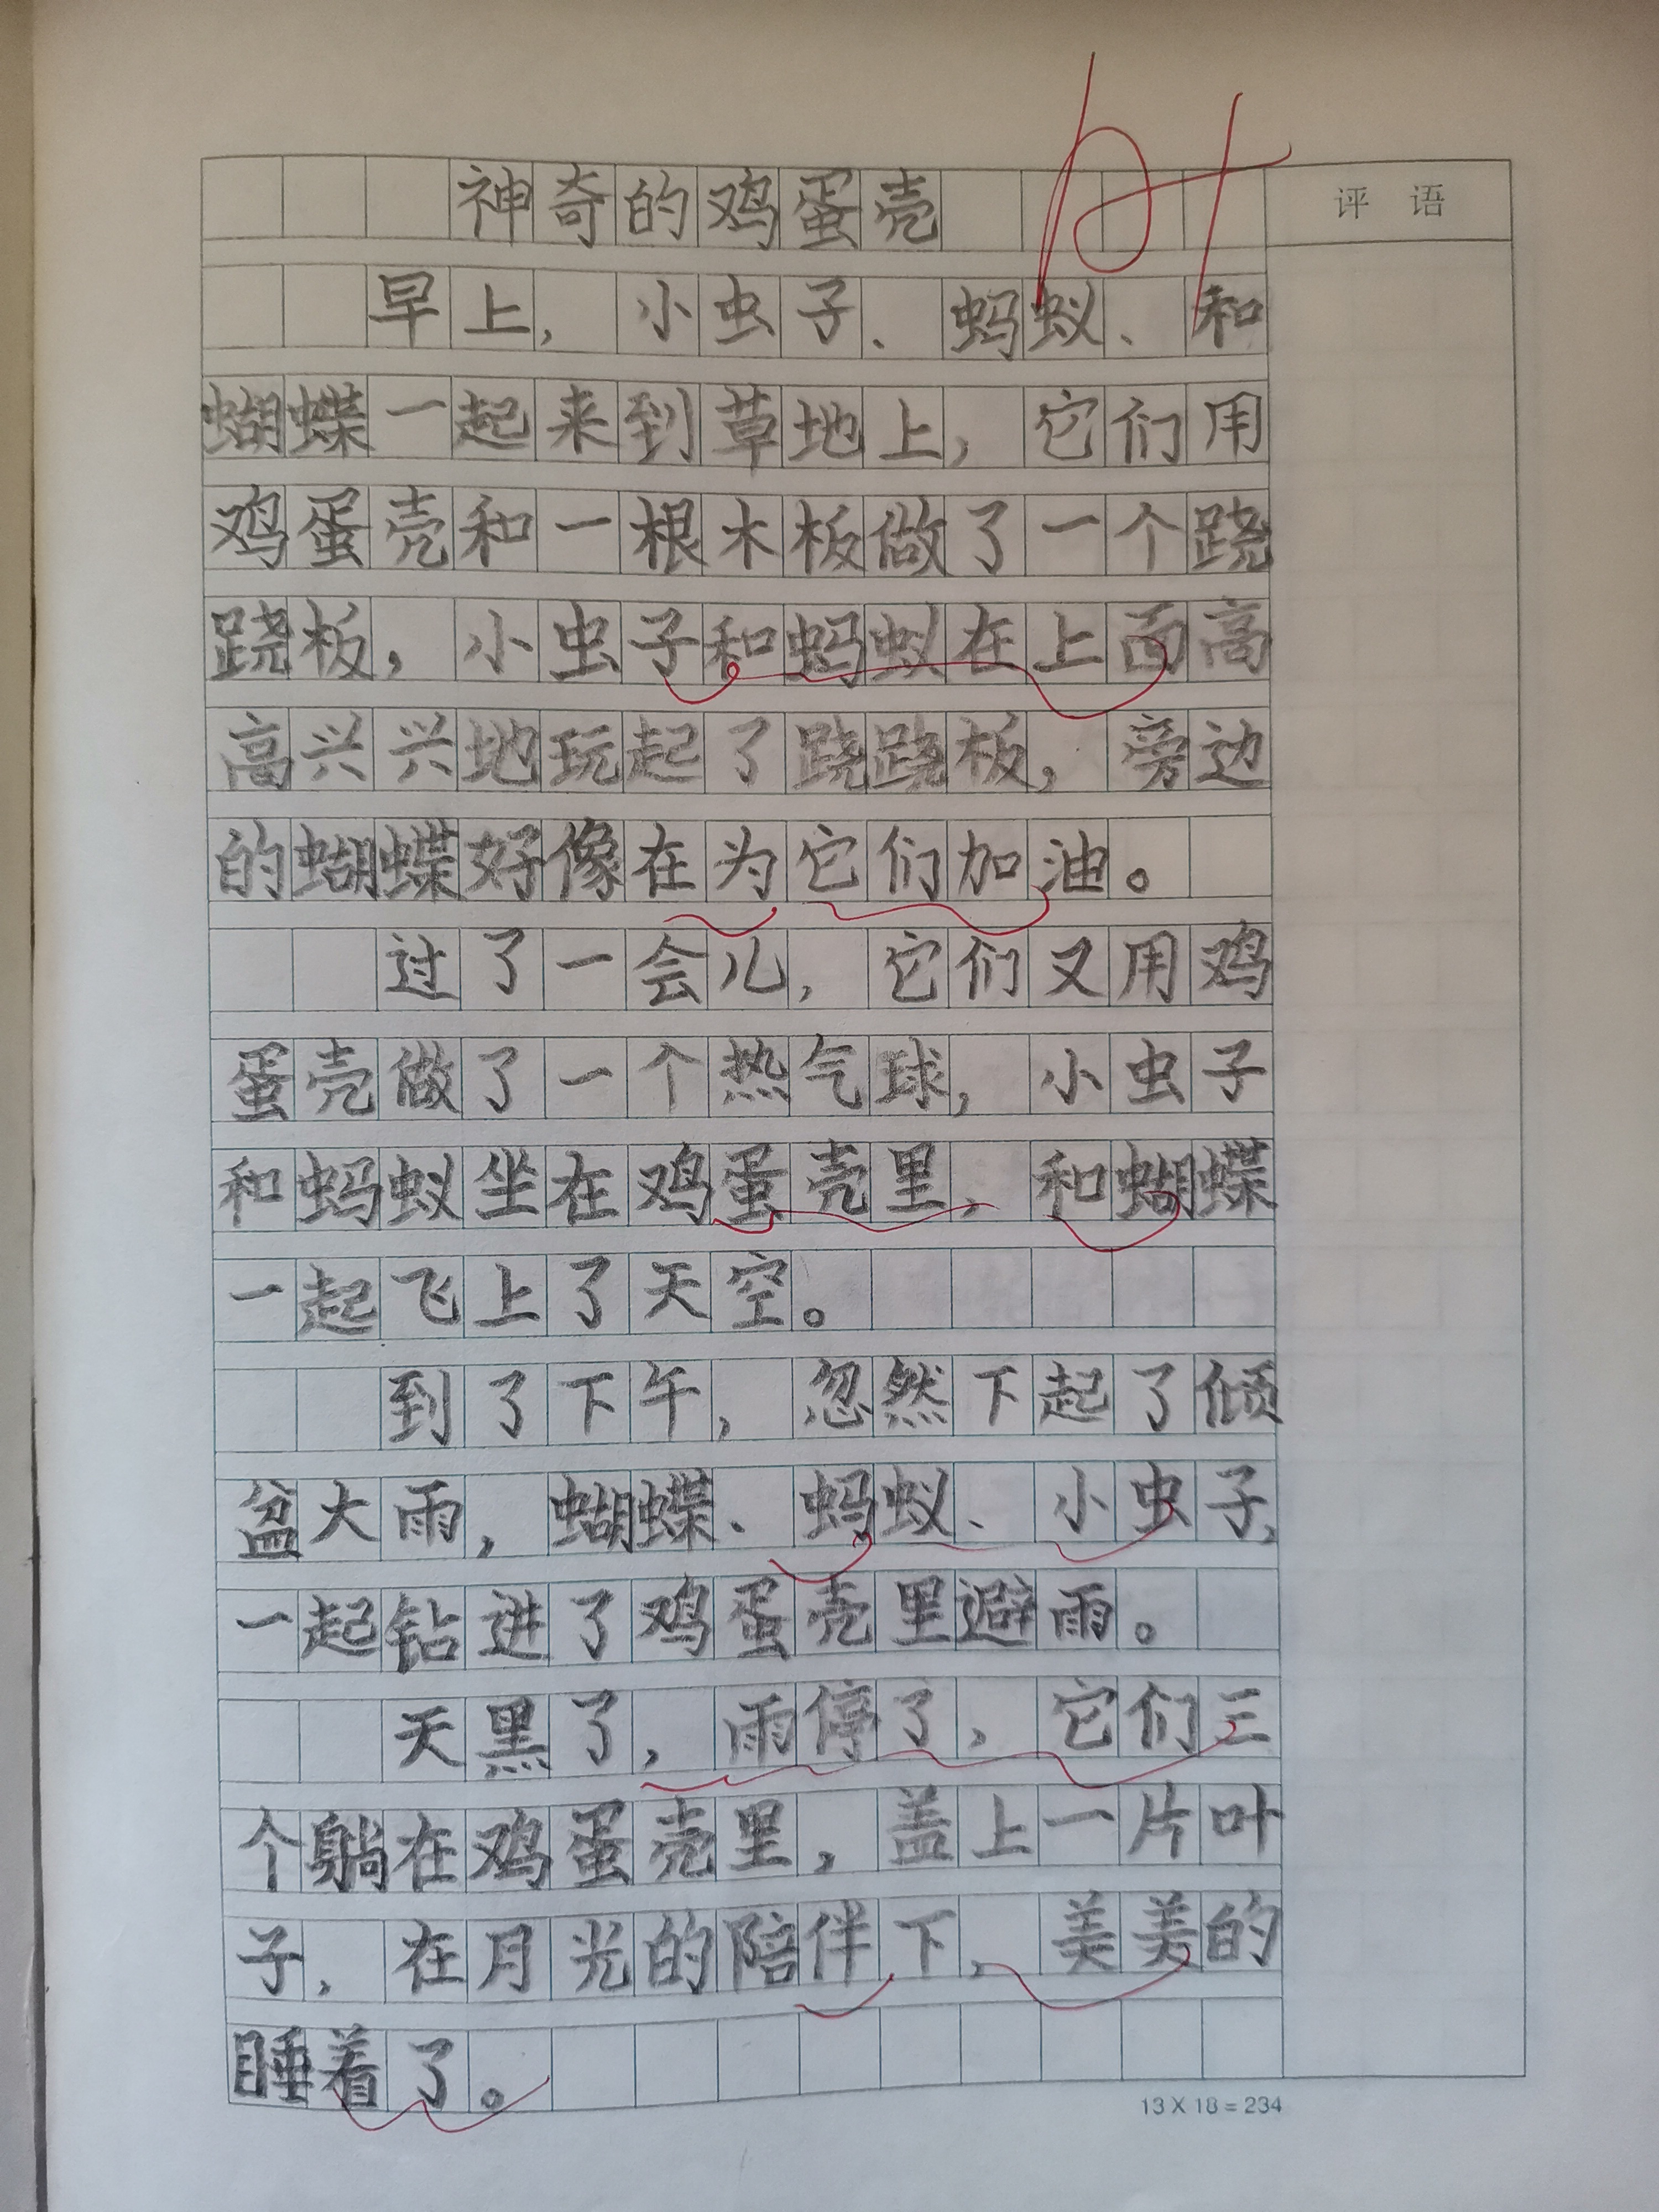 神奇的鸡蛋壳
评语
早上，小虫子、蚂蚁、和
蝴蝶一起来到草地上，它们用
鸡蛋壳和一根木板做了一个跷
跷板，小虫子和蚂蚁在上面高
高兴兴地玩起了跷跷板，旁边
的蝴蝶好像在为它们加油。
过了一会儿，它们又用鸡
蛋壳做了一个热气球，小虫子
和蚂蚁坐在鸡蛋壳里，和蝴蝶
一起飞上了天空。
到了下午，忽然下起了倾
盆大雨，蝴蝶、蚂蚁、小虫子、
一起钻进了鸡蛋壳里避雨。
天黑了，雨停了，它们三
个躺在鸡蛋壳里，盖上一片叶
子，在月光的陪伴下，美美的
睡着了。
13×18=234